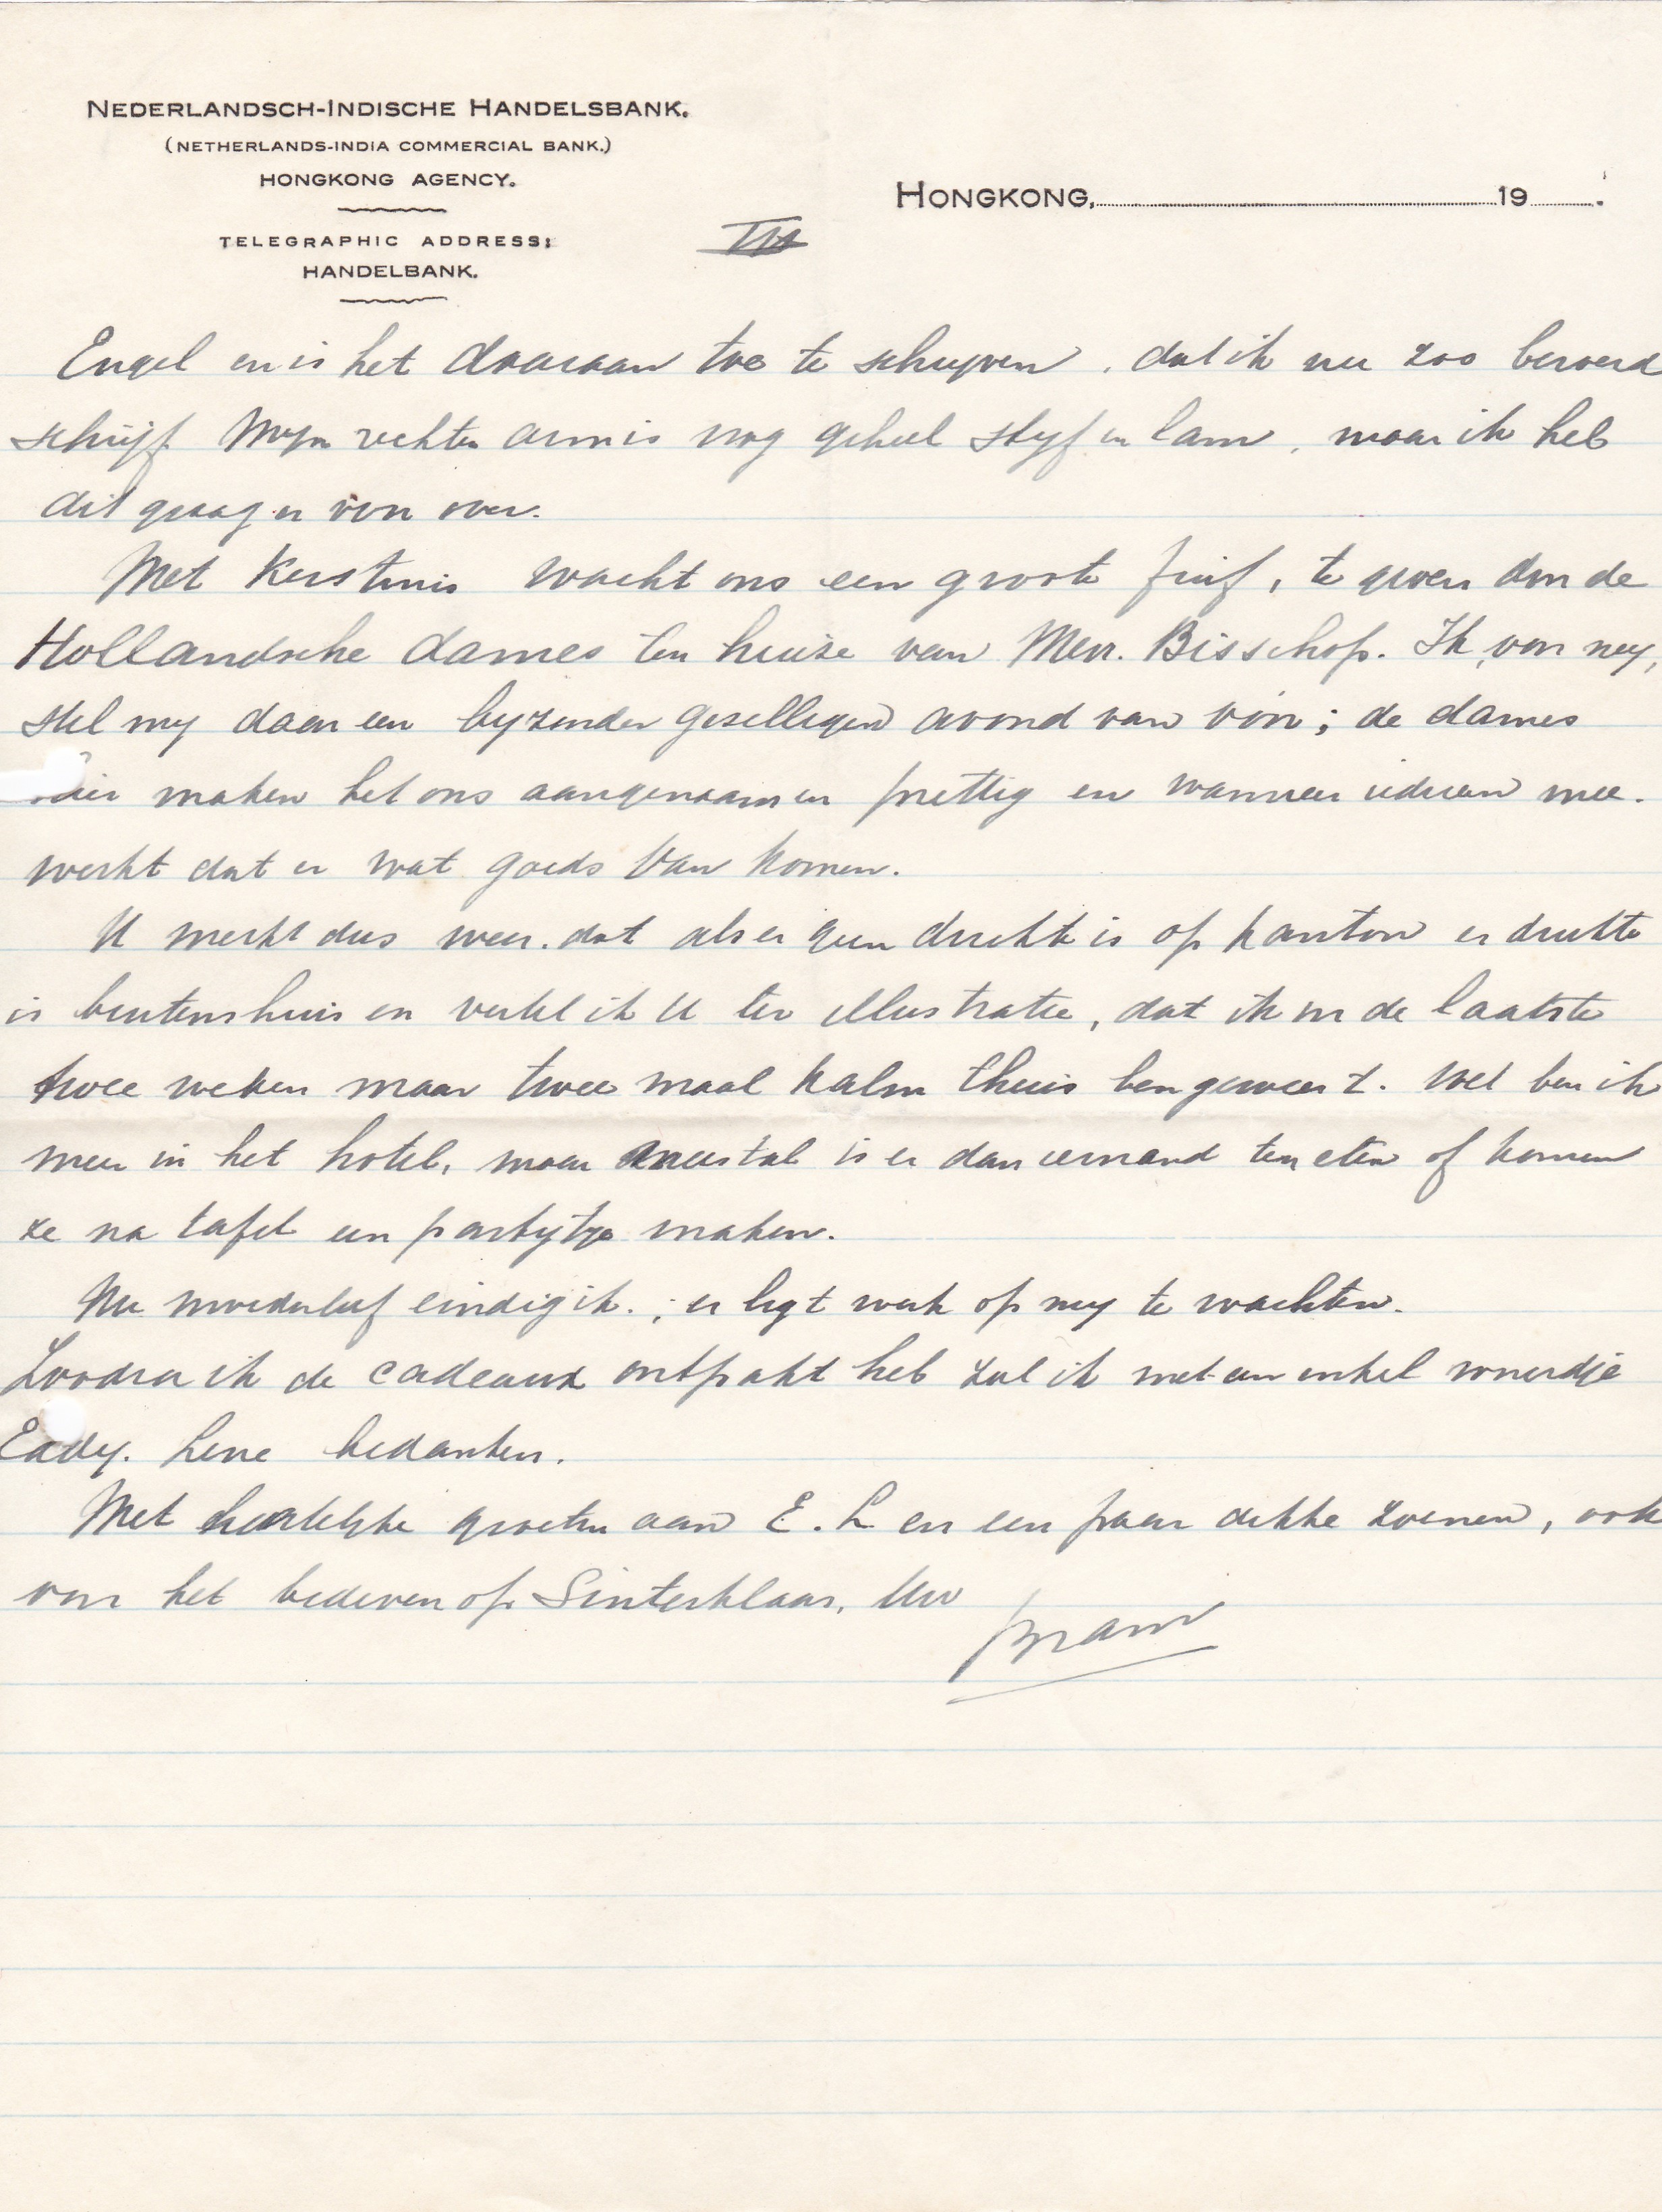 NEDERLANDSCH-INDISCHE HANDELSBANK.
(NETHERLANDS-INDIA COMMERCIAL BANK.)
HONGKONG AGENCY.
HONGKONG, 19 .
TELEGRAPHIC ADDRESS:
HANDELBANK.
III
Engel en is het daaraan toe te schryven, dat ik nu zoo beroerd
schrijf. Myn rechter arm is nog geheel styf en lam, maar ik heb
dit graag er voor over.
Met Kerstmis wacht ons een groote fuif, te geven door de
Hollandsche dames ten huize van Mevr. Bisschop. Ik, voor my,
stel my daar een byzonder gezelligen avond van voor; de dames
hier maken het ons aangenaam en prettig en wanneer iedereen mee-
werkt dat er wat goeds van komen.
U merkt dus weer dat als er geen drukte is op kantoor er drukte
is buitenshuis en vertel ik U ter illustratie, dat ik in de laatste
twee weken maar twee maal kalm thuis ben geweest. Wel ben ik
meer in het hotel, maar meestal is er dan iemand ten eten of komen
ze na tafel een partytje maken.
Nu moederlief eindig ik.; er ligt werk op my te wachten.
Zoodra ik de cadeaux ontpakt heb zal ik met een enkel woordje
Eddy. Lene bedanken.
Met hartelyke groeten aan E. L en een paar dikke zoenen, ook
voor het bederven op Sinterklaas, Uw
Bram